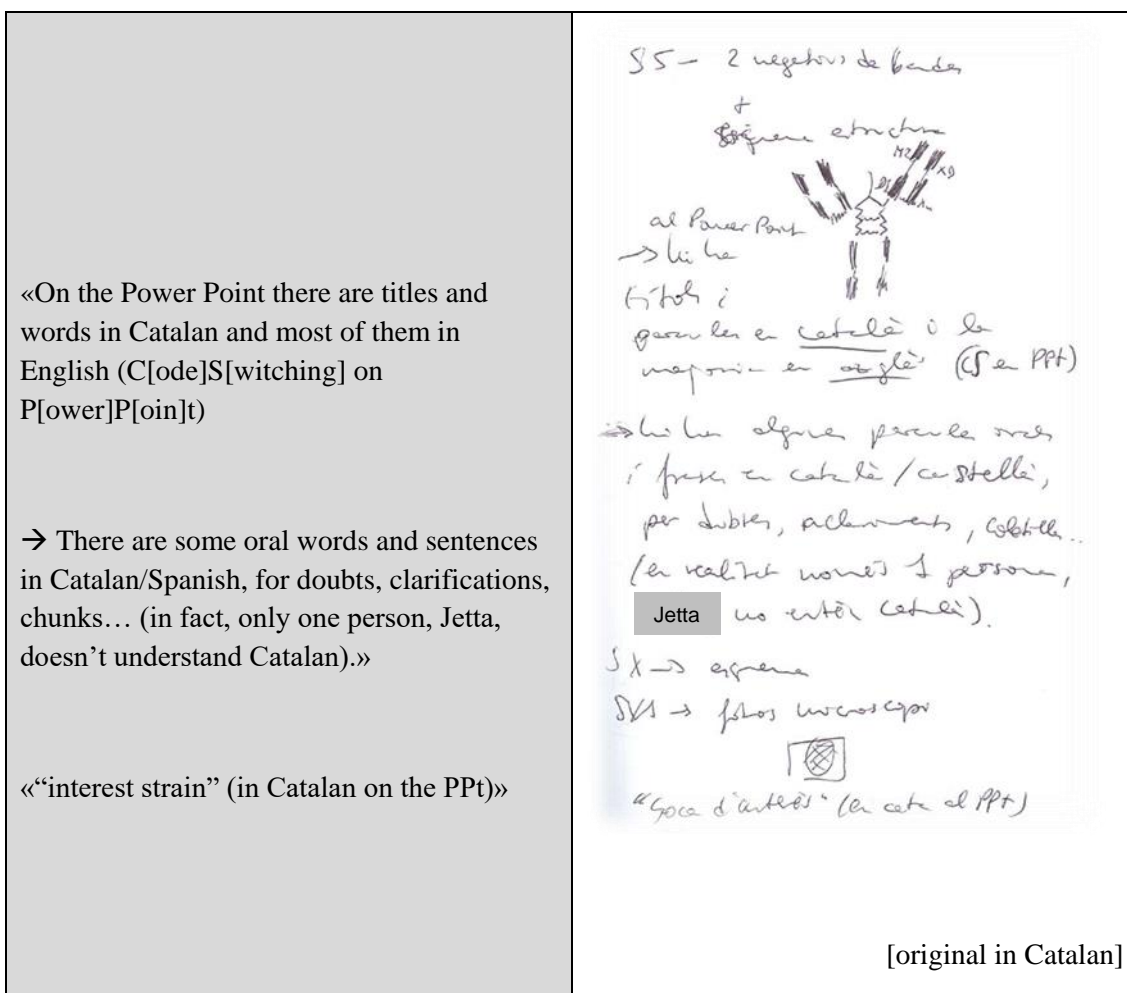 «On the Power Point there are titles and
words in Catalan and most of them in
English (C[ode]S[witching] on
P[ower]P[oin]t)
→ There are some oral words and sentences
in Catalan/Spanish, for doubts, clarifications,
chunks… (in fact, only one person, Jetta,
doesn’t understand Catalan).»
«“interest strain” (in Catalan on the PPt)»
S5 - 2 negatius de
+
estructura
M2
al Power Point
→ hi ha
títols i
paraules en català i la
majoria en anglès (CS en PPt)
→ hi ha algunes paraules orals
i frases en català/castellà,
per dubtes, aclariments,
(en realitat només 1 persona,
Jetta no entén català).
SX → esquema
→ fotos microscopi
"soca d'interès" (en cata al PPt)
[original in Catalan]